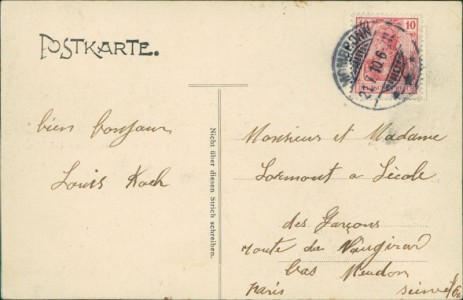 POSTKARTE.
10
MOMBRONN
bien bonjour
Louis Koch
Nicht über diesen Strich schreiben.
Monsieur et Madame
Lormont a Lécole
des Garçons
route de Vaugirar
bas Meudon
Paris